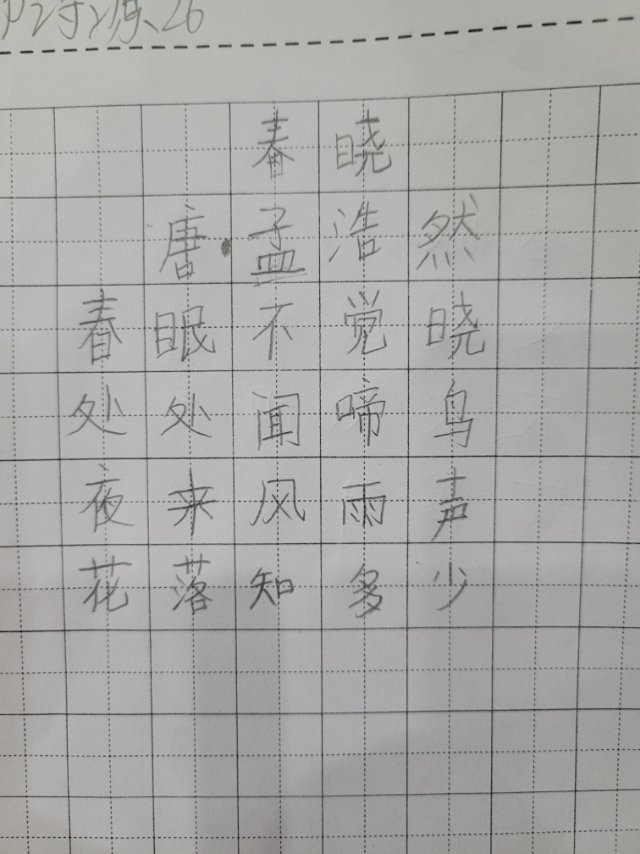 26
春晓
唐·孟浩然
春眠不觉晓
处处闻啼鸟
夜来风雨声
花落知多少